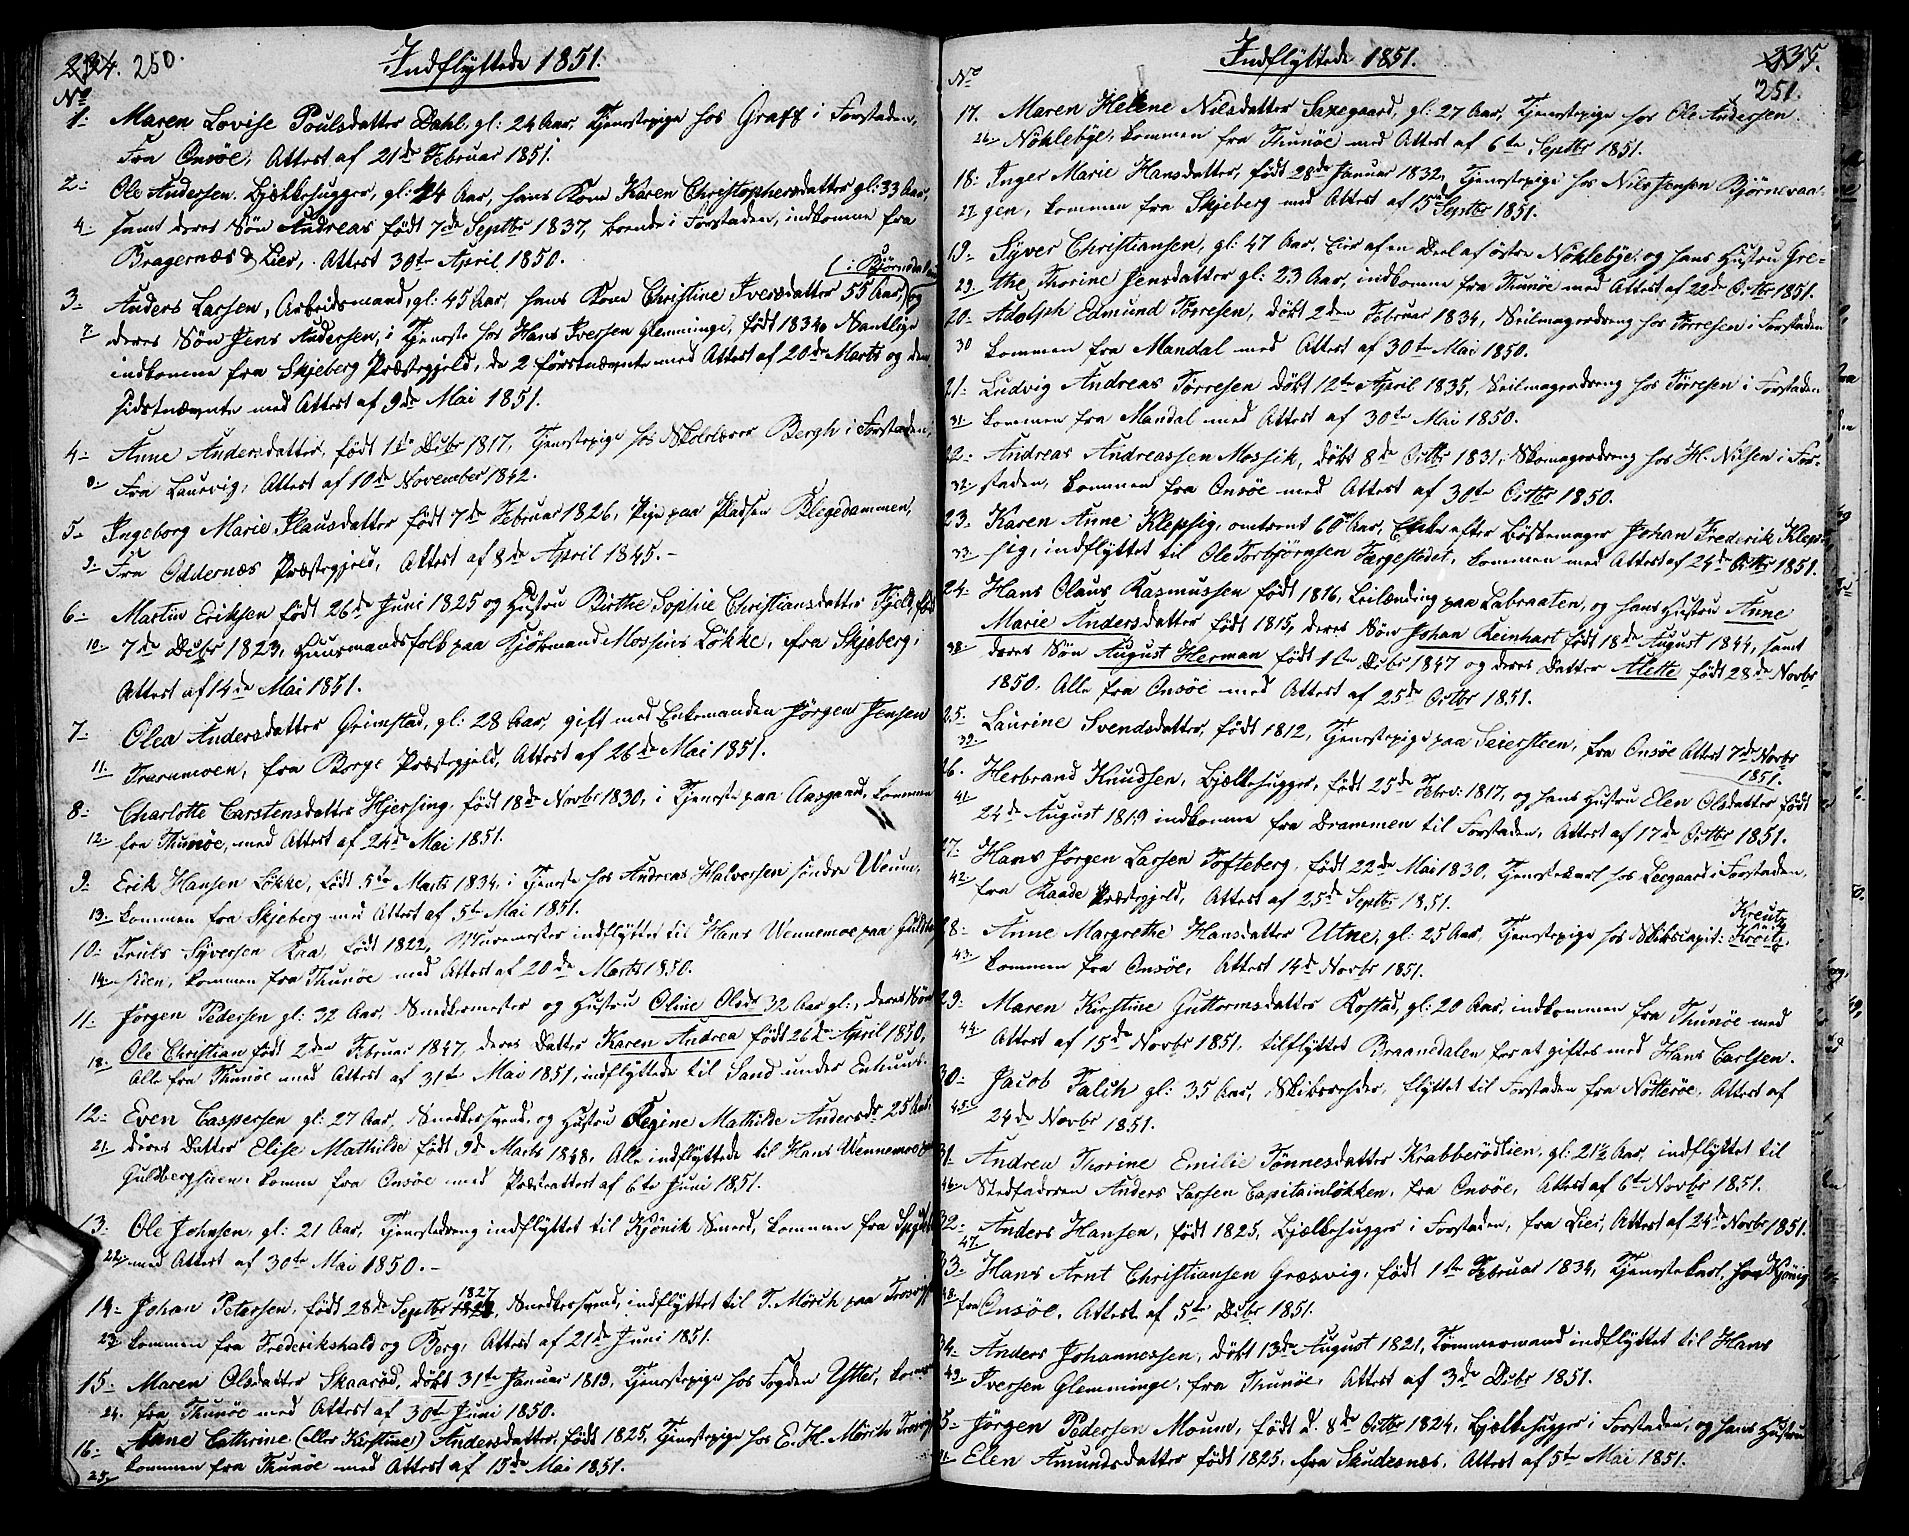 234. 250.
Indflyttede 1851.
No
1: Maren Lovise Poulsdatter Dahl, gl: 24 Aar, Tjenestepige hos Graff i Forstaden,
Fra Onsøe, Attest af 21de Februar 1851.
2: Ole Andersen. Bjælkehugger, gl: 44 Aar, hans Kone Karen Christophersdatter gl: 33 Aar,
4: samt deres Søn Andreas født 7de Septbr 1837, boende i Forstaden, indkomne fra
Bragernæs & Lier, Attest 30te April 1850.
3: Anders Larsen, Arbeidsmand, gl: 45 Aar, hans Kone Christine Iversdatter 55 Aar, og
7 deres Søn Jens Andersen, i Tjeneste hos Hans Iversen Glemminge, født 1834. Samtlige
indkomne fra Skjeberg Præstegjeld, de 2 førstnævnte med Attest af 20de Marts og den
sidstnævnte med Attest af 9de Mai 1851.
4: Anne Andersdatter, født 1ste Decbr 1817, Tjenestepige hos Skolelærer Bergh i Forstaden,
8: Fra Laurvig, Attest af 10de November 1842.
5: Ingeborg Marie Klausdatter født 7de Februar 1826, Pige paa Pladsen Blegedammen,
9: Fra Oddernæs Præstegjeld, Attest af 8de April 1845.
6: Martin Eriksen født 26de Juni 1825 og Hustru Birthe Sophie Christiansdatter Fjeld, født
10: 7de Decbr 1823, Huusmandsfolk paa Kjøbmand Mossins Løkke, fra Skjeberg,
Attest af 14de Mai 1851.
7: Olea Andersdatter Grimstad, gl: 28 Aar, gift med Enkemanden Jørgen Jensen
11: Traramoen, fra Borge Præstegjeld, Attest af 26de Mai 1851.
8: Charlotte Carstensdatter Hjersing, født 18de Novbr 1830, i Tjeneste paa Aasgaard, kommen
12: fra Thunøe, med Attest af 24de Mai 1851.
9: Erik Hansen Løkke, født 5te Marts 1834, i Tjeneste hos Andreas Halvorsen søndre Weum,
13: kommen fra Skjeberg med Attest af 5te Mai 1851.
10: Truls Syversen Raa, født 1822, Muremester indflyttet til Hans Wennemoe paa Guldberg
14: sien, kommen fra Thunøe med Attest af 20de Marts 1850.
11: Jørgen Pedersen gl: 32 Aar, Snedkermester og Hustru Oline Olsdr 32 Aar gl:, deres Søn
18: Ole Christian født 2den Februar 1847, deres Datter Karen Andrea født 26de April 1850,
Alle fra Thunøe med Attest af 31te Mai 1851, indflyttede til Sand under Enhuus.
12: Even Caspersen gl: 27 Aar, Snedkersvend, og Hustru Regine Mathilde Andersdr 25 Aar,
21: deres Datter Elise Mathilde født 9de Marts 1848, Alle indflyttede til Hans Wennemoe
Guldbergsien. komne fra Onsøe med Præsteattest af 6te Juni 1851.
13: Ole Johnsen, gl: 21 Aar, Tjenestedreng indflyttet til Kjønik Smed, kommen fra
22: med Attest af 30te Mai 1850.
14: Johan Petersen, født 28de Septbr 1827, Snedkersvend, indflyttet til T. Mörch paa
23: kommen fra Frederikshald og Berg, Attest af 21de Juni 1851.
15: Maren Olsdatter Skaarød, døbt 31te Januar 1819, Tjenestepige hos Fogden Ytter,
24. fra Thunøe med Attest af 30te Juni 1850.
16: Anne Cathrine (eller Kirstine) Andersdatter, født 1825, Tjenestepige hos E. H. Mörch
25: kommen fra Thunøe med Attest af 15de Mai 1851.
235.
Indflyttede 1851.
251.
No
17. Maren Helene Nilsdatter Saxegaard, gl: 27 Aar, Tjenestepige hos Ole Andersen
26. Nöklebye, kommen fra Thunøe med Attest af 6te Septbr 1851.
18: Inger Marie Hansdatter, født 28de Januar 1832, Tjenestepige hos Nils Jensen Bjørnevaa-
27: gen, kommen fra Skjeberg med Attest af 15de Septbr 1851.
19: Syver Christiansen, gl: 47 Aar, Eier af en Deel af østre Nöklebye, og hans Hustru Gre-
29: the Thorine Jensdatter gl: 23 Aar, indkomne fra Thunøe med Attest af 22de Octbr 1851.
20: Adolph Edmund Törresen, døbt 2den Februar 1834, Seilmagerdreng hos Törresen i Forstaden
30 kommen fra Mandal med Attest af 30te Mai 1850.
21: Ludvig Andreas Törresen døbt 12te April 1835, Seilmagerdreng hos Törresen i Forstaden
31: kommen fra Mandal med Attest af 30te Mai 1850.
22: Andreas Andreassen Mossik, døbt 8de Octbr 1831, Skomagerdreng hos H. Nilsen i For-
32: staden, kommen fra Onsøe med Attest af 30te Octbr 1850.
23: Karen Anne Klepsig, omtrent 60 Aar, Enke efter Bøssemager Johan Frederik Klep-
33: sig, indflyttet til Ole Torbjørnsen Færgestedet, kommen med Attest af 24de Octbr 1851.
24: Hans Olaus Rasmussen født 1816, Leilænding paa Labraaten, og hans Hustru Anne
Marie Andersdatter født 1815, deres Søn Johan Reinhart født 18de August 1844, samt
38: deres Søn August Herman født 1ste Decbr 1847 og deres Datter Alette født 28de Novbr
1850. Alle fra Onsøe med Attest af 25de Octbr 1851.
25: Laurine Svendsdatter, født 1812, Tjenestepige paa Seiersteen, fra Onsøe Attest 7de Novbr
39. 1851.
26. Herbrand Knudsen, Bjælkehugger, født 25de Febr: 1817, og hans Hustru Elen Olsdatter født
41 24de August 1819 indkomne fra Drammen til Forstaden, Attest af 17de Octbr 1851.
27: Hans Jörgen Larsen Tofteberg, født 22de Mai 1830, Tjenestekarl hos Leegaard i Forstaden,
42: fra Raade Præstegjeld, Attest af 25de Septbr 1851.
28: Anne Margrethe Hansdatter Utne, gl: 25 Aar, Tjenestepige hos Skibscapit: Kreutz
43. kommen fra Onsøe, Attest 14de Novbr 1851.
29: Maren Kirstine Guttormsdatter Kostad, gl: 20 Aar, indkommen fra Thunøe med
44 Attest af 15de Novbr 1851, tilflyttet Braanedalen for at giftes med Hans Carlsen.
30: Jacob Falch gl: 35 Aar, Skibsrheder, flyttet til Forstaden fra Nøtterøe, Attest af
45: 24de Novbr 1851.
31: Andrea Thorine Emilie Tönnesdatter Krabberödlien, gl: 21½ Aar, indflyttet til
46: Stedfaderen Anders Larsen Capitainløkken, fra Onsøe, Attest af 6te Novbr 1851.
32: Anders Hansen, født 1825, Bjælkehugger i Forstaden, fra Lier, Attest af 24de Novbr 1851.
47.
33: Hans Arnt Christiansen Græsvig, født 1ste Februar 1834, Tjenestekarl, hos Kjönig
48: fra Onsøe, Attest af 5te Decbr 1851.
34: Anders Johannessen, døbt 13de August 1821, Tømmermand indflyttet til Hans
49 Iversen Glemminge, fra Thunøe, Attest af 3de Decbr 1851.
35: Jørgen Pedersen Moum, født d. 8de Octbr 1824, Bjælkehugger i Forstaden, og hans Hustru
Elen Amundsdatter født 1825, fra Skudesnæs, Attest af 5te Mai 1851.